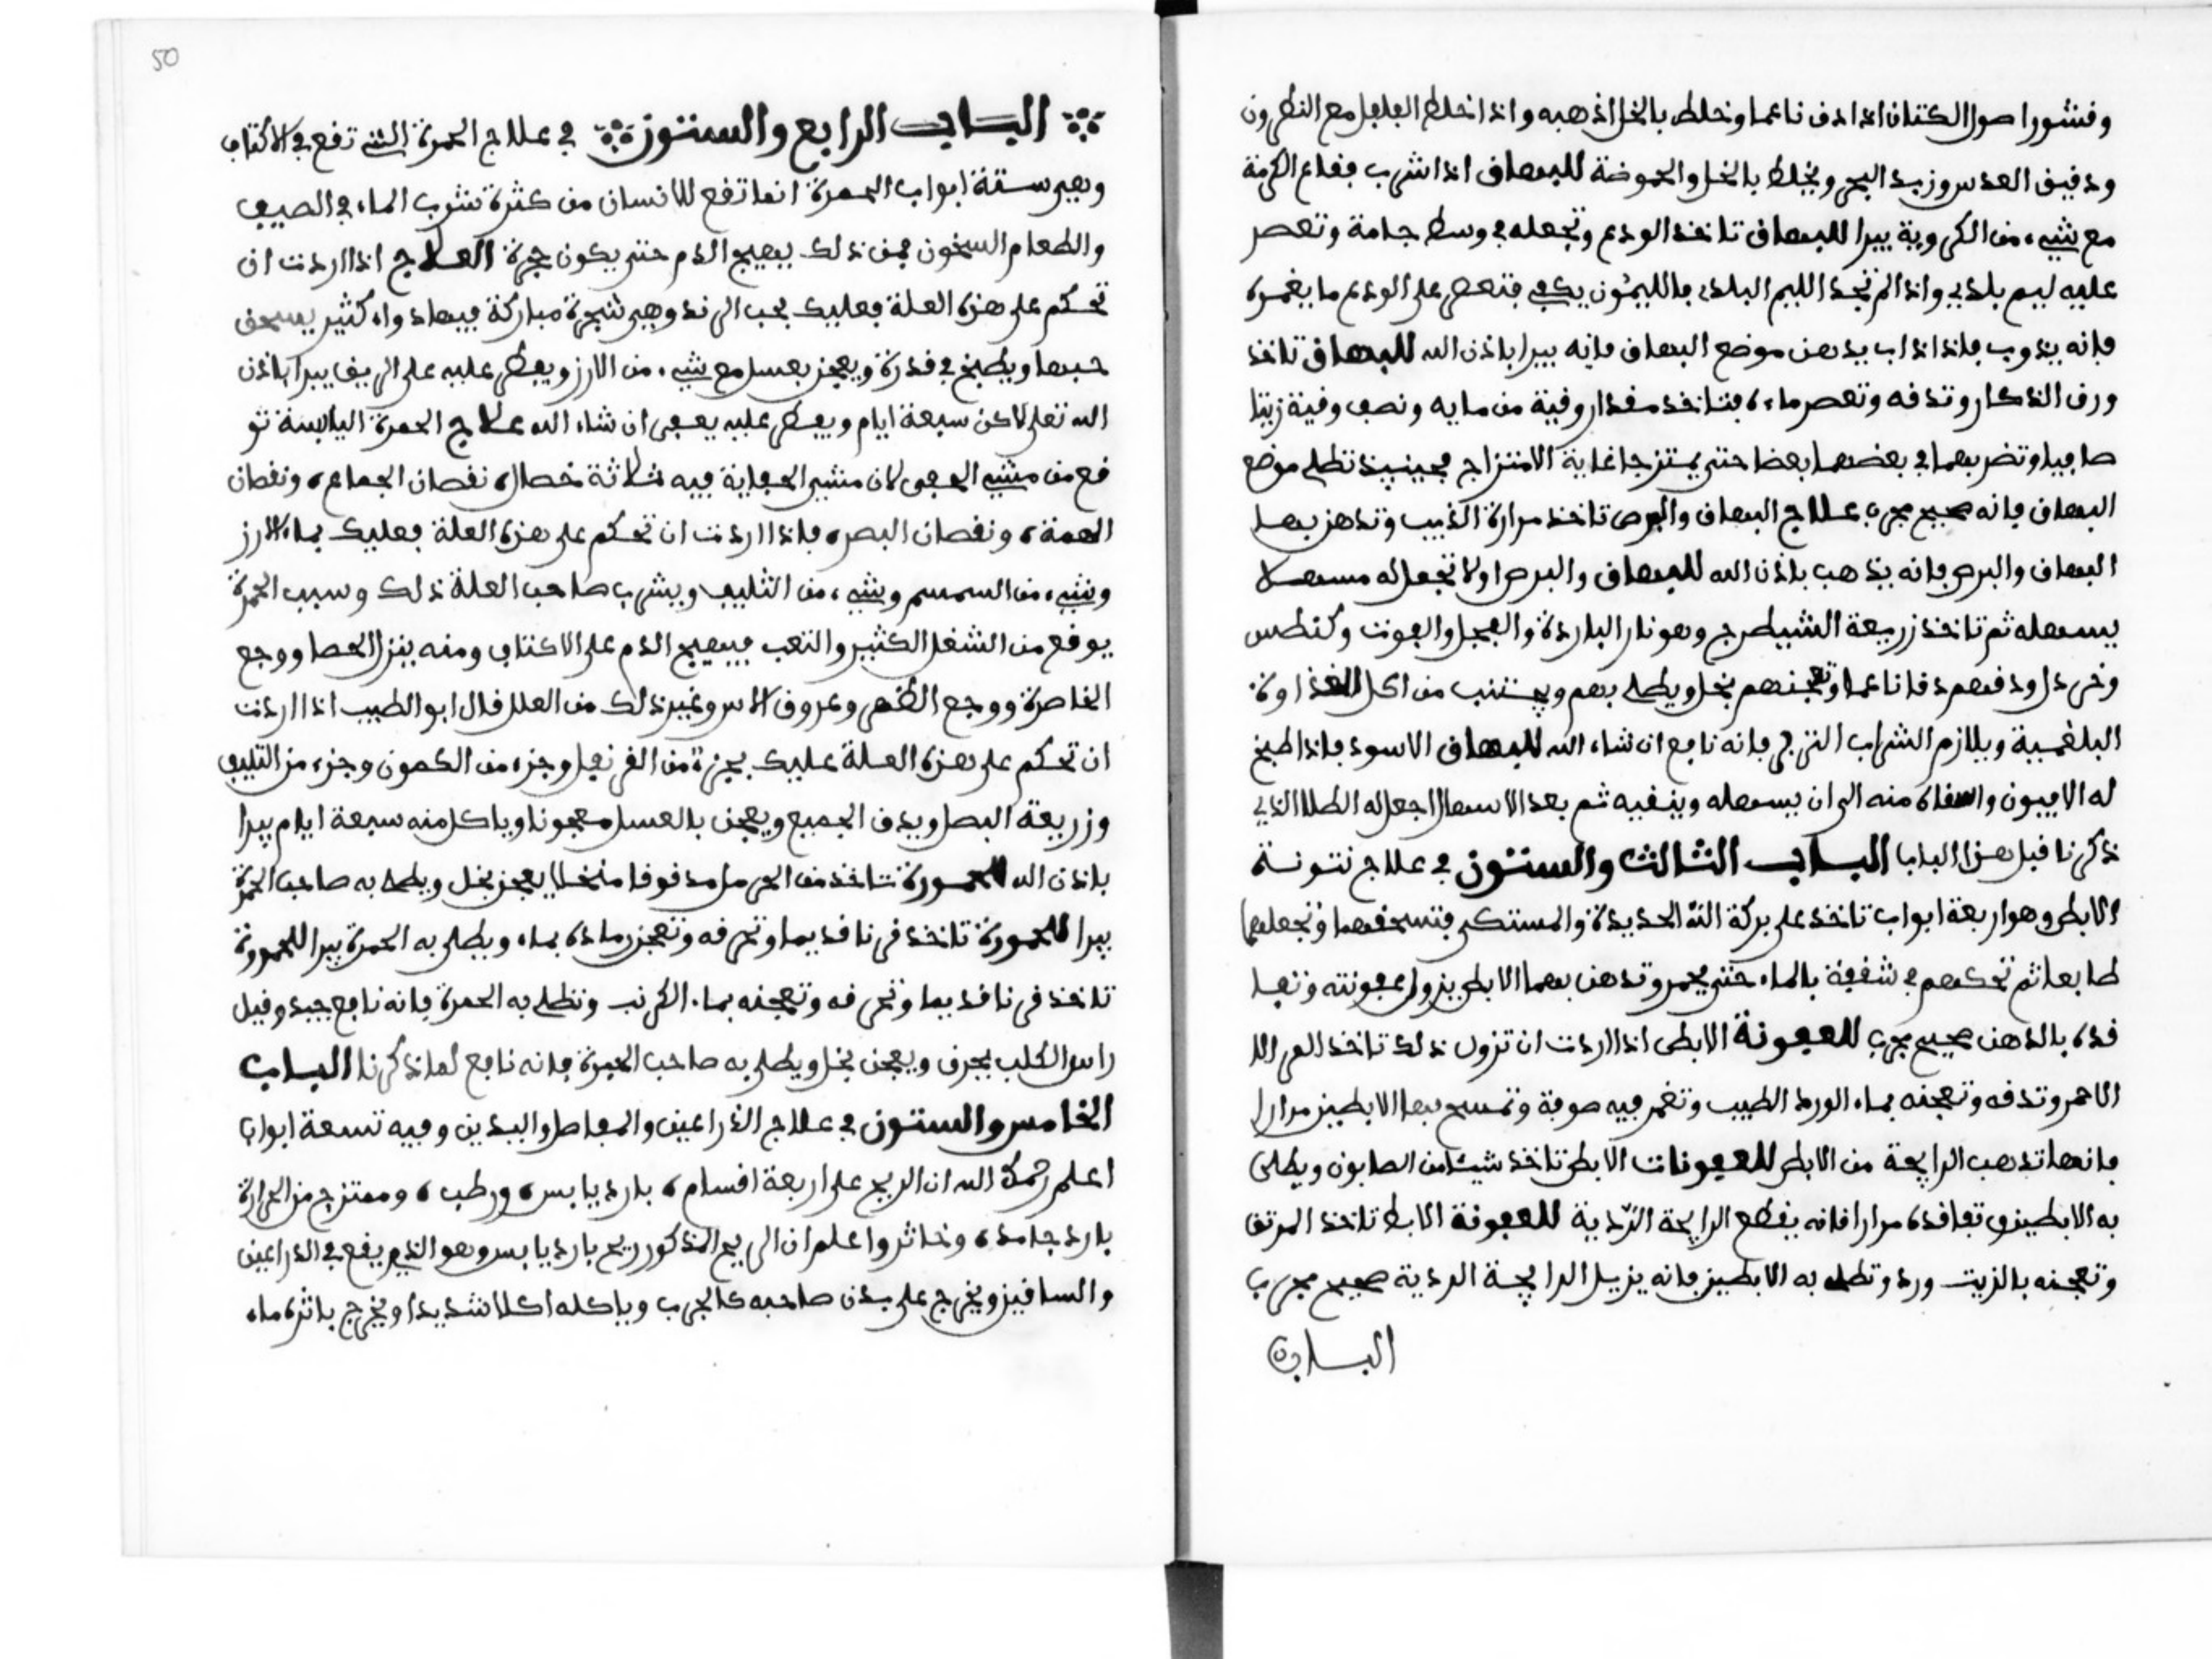 وقشور اصول الكتان اذا دق ناعما وخلط بالخل اذهبه واذا خلط الفلفل مع النطرون
ودقيق العدس وزبد البحر ويخلط بالخل والحموضة للبهاق اذا شرب فقاع الكرمة
مع شيء من الكروية يبرا للبهاق تاخذ الودع وتجعله في وسط جامة وتعصر
عليه ليم بلدي واذا لم تجد الليم البلدي فالليمون يكفي فتعصر على الودع ما يغمره
فانه يذوب فاذا ذاب يدهن موضع البهاق فانه يبرا باذن الله للبهاق تاخذ
ورق الذكار وتدقه وتعصر ماءه فتاخذ مقدار وقية من مايه ونصف وقية زيتا
صافيا وتضربهما في بعضهما بعضا حتى يمتزجا غاية الامتزاج فحينيذ تطلى موضع
البهاق فانه صحيح مجرب علاج البهاق والبرص تاخذ مرارة الذيب وتدهن بها
البهاق والبرص فانه يذهب باذن الله للبهاق والبرص اولا تجعل له مسهلا
يسهله ثم تاخذ زريعة الشيطرج وهو نار الباردة والفجل والفوت وكنطس
وخردل ودقهم دقا ناعما وتعجنهم بخل ويطلى بهم ويجتنب من اكل الغذاوة
البلغمية ويلازم الشراب الترجي فانه نافع ان شاء الله للبهاق الاسود فاذا طبخ
له الافيون واسقاه منه الى ان يسهله وينفيه ثم بعد الاسهال اجعل له الطلا الذي
ذكرنا قبل هذا الباب الباب الثالث والستون في علاج نتونة
الابط وهو اربعة ابواب تاخذ على بركة الله الحديدة والمستكى فتسحقهما وتجعلهما
طابعا ثم تحكهم في شقفة بالماء حتى يحمر وتدهن بهما الابط يزول عفونته وتعا
قده بالدهن صحيح مجرب للعفونة الابط اذا اردت ان تزول ذلك تاخذ
الاحمر وتدقه وتعجنه بماء الورد الطيب وتغمر فيه صوفة وتمسح بها الابطين مرارا
فانها تذهب الرايحة من الابط للعفونات الابط تاخذ شيئا من الصابون ويطلى
به الابطين وتعاقده مرارا فانه يقطع الرايحة الردية للعفونة الابط تاخذ المرتق
وتعجنه بالزيت ورد وتطلى به الابطين فانه يزيل الرايحة الردية صحيح مجرب
الباب
50
الباب الرابع والستون في علاج الحمرة التي تقع في الاكتاب
وهي ستة ابواب الحمرة انها تقع للانسان من كثرة شرب الماء في الصيف
والطعام السخون فمن ذلك يهيج الدم حتى يكون جمرة العلاج اذا اردت ان
تحكم على هذه العلة فعليك بحب الرند وهي شجرة مباركة فيها دواء كثير يسحق
حبها ويطبخ في قدرة ويعجن بعسل مع شيء من الارز ويفطر عليه على الريق يبرا باذن
الله تعلى لاكن سبعة ايام ويفطر عليه يعفى ان شاء الله علاج الحمرة اليابسة تو
قع من مشي الحفى لان مشي الحفاية فيه ثلاثة خصال نقصان الجماع، ونقصان
الهمة، ونقصان البصر، فاذا اردت ان تحكم على هذه العلة فعليك بماء الارز
وشيء من السمسم وشيء من الثليب ويشرب صاحب العلة ذلك وسبب الحمرة
يوقع من الشغل الكثير والتعب فيهيج الدم على الاكتاب ومنه ينزل الحصا ووجع
الخاصرة ووجع الظهر وعروق الاس وغير ذلك من العلل قال ابو الطبيب اذا اردت
ان تحكم على هذه العلة عليك بجزء من القرنفل وجزء من الكمون وجزء من الثليب
وزريعة البصل ويدق الجميع ويعجن بالعسل معجونا وياكل منه سبعة ايام يبرا
باذن الله للحمورة تاخذ من الحرمل مدقوقا منخلا يعجن بخل ويطلى به صاحب الحمرة
يبرا للحمورة تاخذ قرنا قديما وتحرقه وتعجن رماده بماء ويطلى به الحمرة يبرا للحمورة
تاخذ قرنا قديما وتحرقه وتعجنه بماء الكرنب وتطلى به الحمرة فانه نافع جيد وقيل
راس الكلب يحرق ويعجن بخل ويطلى به صاحب الحمرة فانه نافع لما ذكرنا الباب
الخامس والستون في علاج الذراعين والمفاصل واليدين وفيه تسعة ابواب
اعلم رحمك الله ان الريح على اربعة اقسام، بارد يابس، ورطب، وممتزج من الحرارة
بارد جامد، وخاثر واعلم ان الريح المذكور ريح بارد يابس وهو الذي يقع في الذراعين
والساقين ويخرج على بدن صاحبه كالجرب وياكله اكلا شديدا ويخرج باثره ماء